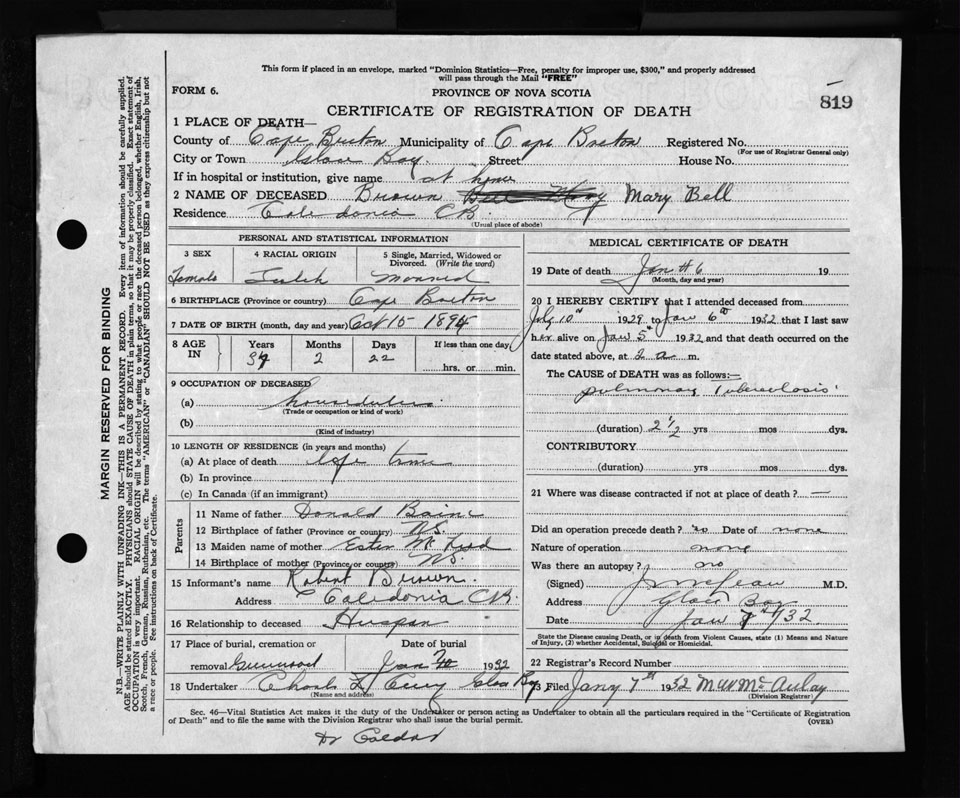 This form if placed in an envelope, marked "Dominion Statistics—Free, penalty for improper use, $300," and properly addressed
will pass through the Mail "FREE"
FORM 6.
PROVINCE OF NOVA SCOTIA
819
CERTIFICATE OF REGISTRATION OF DEATH
1 PLACE OF DEATH—
County of Cape Breton Municipality of Cape Breton Registered No.
(For use of Registrar General only)
City or Town Glace Bay Street House No.
If in hospital or institution, give name at home
2 NAME OF DECEASED Brown Mary Bell
Residence Caledonia CB.
(Usual place of abode)
PERSONAL AND STATISTICAL INFORMATION
3 SEX 4 RACIAL ORIGIN 5 Single, Married, Widowed or Divorced. (Write the word)
Female
6 BIRTHPLACE (Province or country) Cape Breton
7 DATE OF BIRTH (month, day and year) Oct 15 1894
8 AGE IN Years Months Days If less than one day
37 2 22 hrs. or min.
9 OCCUPATION OF DECEASED
(a)
(Trade or occupation or kind of work)
(b)
(Kind of industry)
10 LENGTH OF RESIDENCE (in years and months)
(a) At place of death life time
(b) In province
(c) In Canada (if an immigrant)
Parents
11 Name of father Donald
12 Birthplace of father (Province or country) N.S.
13 Maiden name of mother
14 Birthplace of mother (Province or country) N.S.
15 Informant's name Robert Brown.
Address Caledonia CB.
16 Relationship to deceased Huspan
17 Place of burial, cremation or Date of burial
removal Greenwood Jan 1932
18 Undertaker Glace Bay
(Name and address)
MEDICAL CERTIFICATE OF DEATH
19 Date of death Jan 6 19
(Month, day and year)
20 I HEREBY CERTIFY that I attended deceased from
July 10th 1929 to Jan 6th 1932 that I last saw
her alive on Jan 5th 1932 and that death occurred on the
date stated above, at 2 a m.
The CAUSE OF DEATH was as follows:—
pulmonary Tuberculosis
(duration) 2 1/2 yrs mos dys.
CONTRIBUTORY
(duration) yrs. mos dys.
21 Where was disease contracted if not at place of death? —
Did an operation precede death? no Date of none
Nature of operation none
Was there an autopsy? no
(Signed) M.D.
Address Glace Bay
Date Jan 1932
State the Disease causing Death, or in death from Violent Causes, state (1) Means and Nature of Injury, (2) whether Accidental, Suicidal or Homicidal.
22 Registrar's Record Number
23 Filed Jany 7th 1932 McAulay
(Division Registrar)
Sec. 46—Vital Statistics Act makes it the duty of the Undertaker or person acting as Undertaker to obtain all the particulars required in the "Certificate of Registration
of Death" and to file the same with the Division Registrar who shall issue the burial permit.
(OVER)
MARGIN RESERVED FOR BINDING
N.B.—WRITE PLAINLY WITH UNFADING INK—THIS IS A PERMANENT RECORD. Every item of information should be carefully supplied.
AGE should be stated EXACTLY. PHYSICIANS should STATE CAUSE OF DEATH in plain terms, so that it may be properly classified. Exact statement of
OCCUPATION is very important. RACIAL ORIGIN will be described by stating to what people or race the deceased person belonged, whether English, Irish,
Scotch, French, German, Russian, Ruthenian, etc. The terms "AMERICAN" or "CANADIAN" SHOULD NOT BE USED as they express citizenship but not
a race or people. See instructions on back of Certificate.